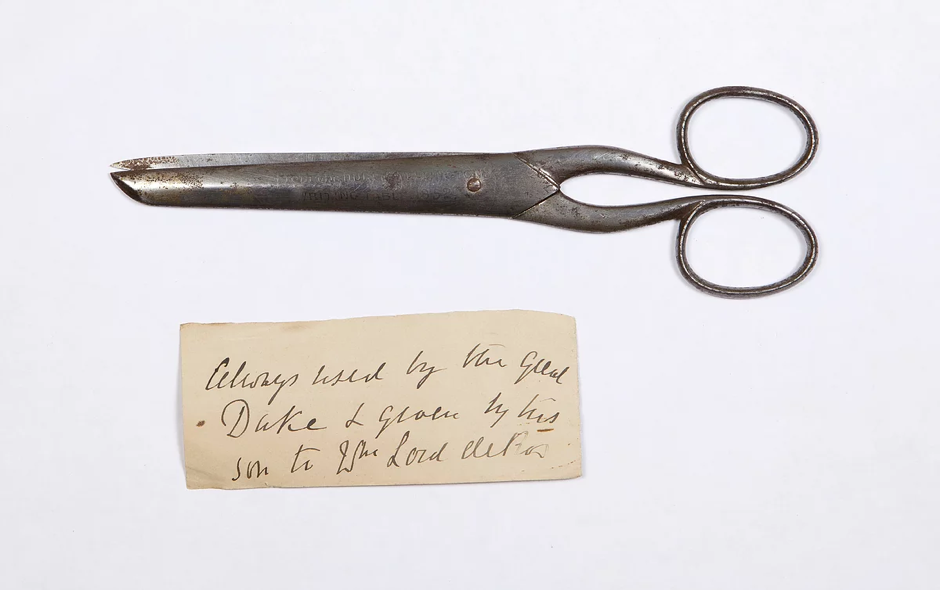 Always used by the great
Duke & given by his
son to Wm Lord de Ros